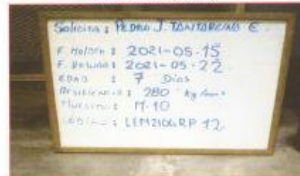 Solicita : PEDRO J. TANTARUNA E.
F. Moldeo : 2021-05-15
F. Rotura : 2021-05-22
EDAD : 7 Dias
Resistencia : 280 Kg/cm²
Muestra : M-10
LEM210GRP 12